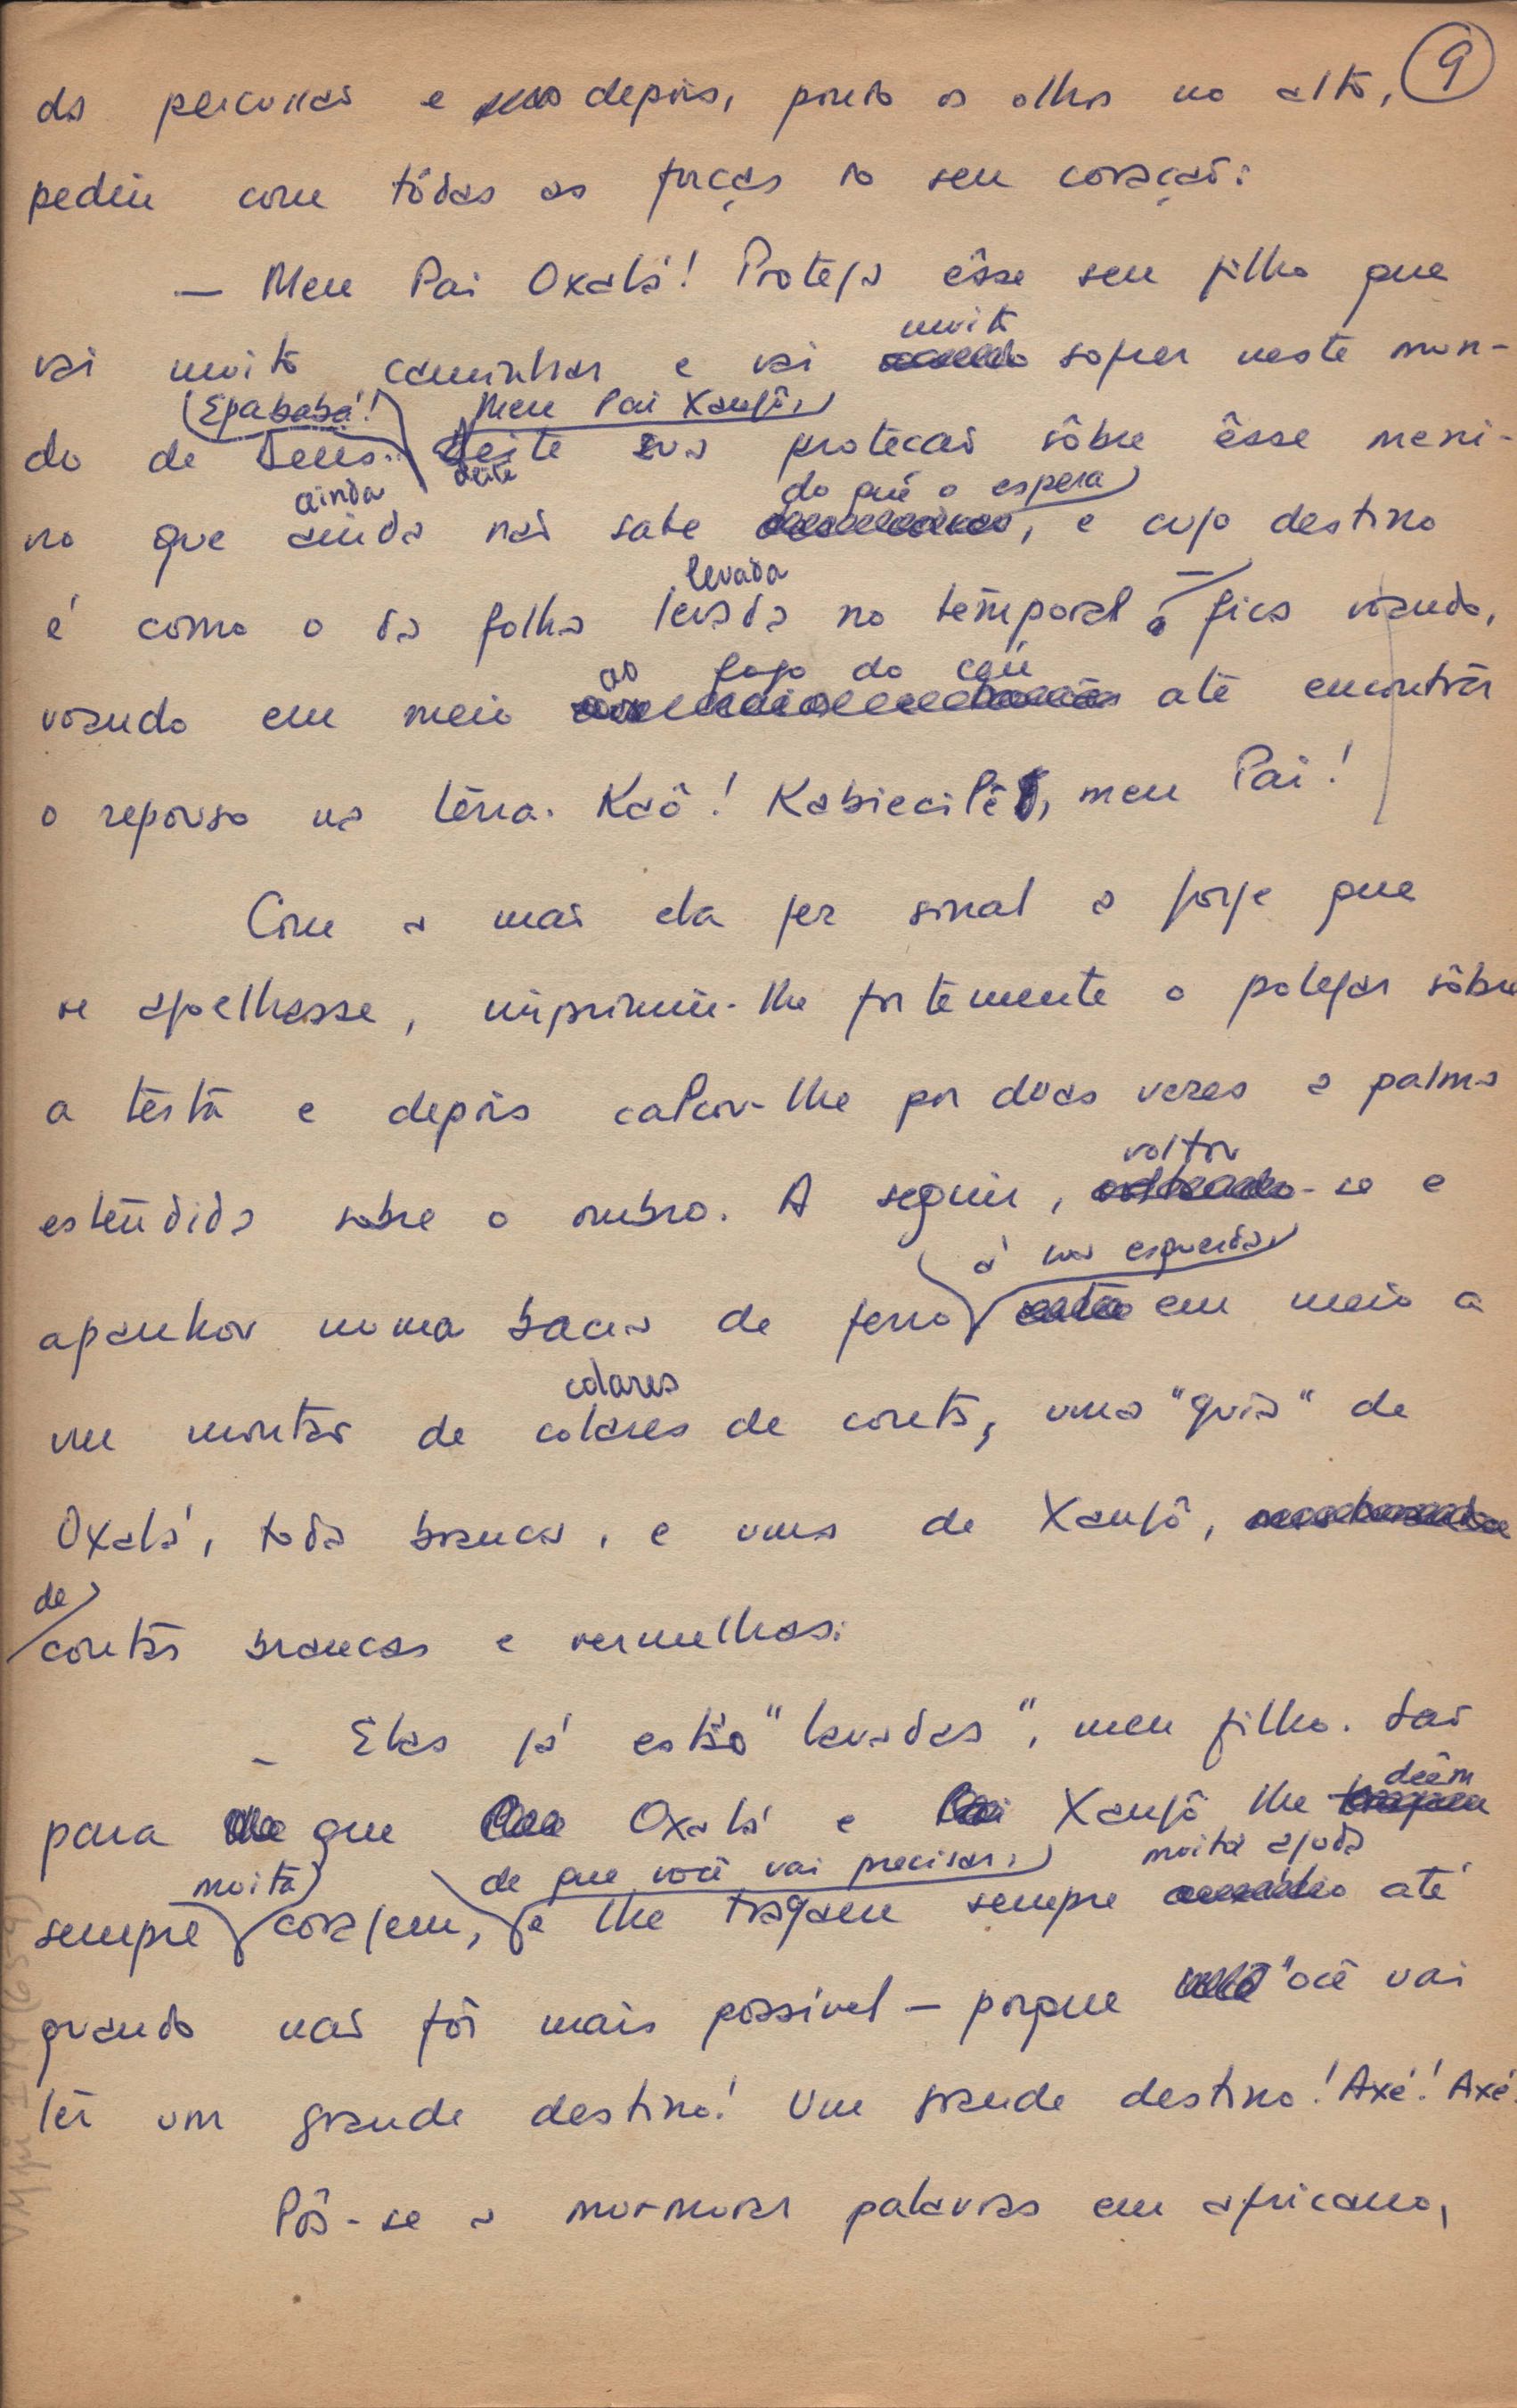 9
da percorrer e depois, pondo os olhos no alto,
pediu com tôdas as forças do seu coração:
— Meu Pai Oxalá! Proteja êsse seu filho que
muito
vai muito caminhar e vai sofrer neste mun-
Epababá! Meu Pai Xangô,
do de Deus. deite sua proteção sôbre êsse meni-
ainda deite do quê o espera
no que ainda não sabe , e cujo destino
levada
é como o da folha levada no temporal — fica voando,
ao fogo do céu
voando em meio até encontrar
o repouso na terra. Kaô! Kabiecilê, meu Pai!
Com a mão ela fez sinal a Jorge que
se ajoelhasse, imprimiu-lhe fortemente o polegar sôbre
a testa e depois calcou-lhe por duas vezes a palma
voltou
estendida sobre o ombro. A seguir, -se e
à sua esquerda
apanhou numa bacia de ferro em meio a
colares
um montão de colares de conta, uma "guia" de
Oxalá, toda branca, e uma de Xangô,
de
contas brancas e vermelhas:
— Elas já estão "lavadas", meu filho. São
dêem
para que Oxalá e Xangô lhe
muita de que você vai precisar, muita ajuda
sempre coragem, e lhe tragam sempre até
quando não fôr mais possível — porque você vai
ter um grande destino! Um grande destino! Axé! Axé!
Pôs-se a murmurar palavras em africano,